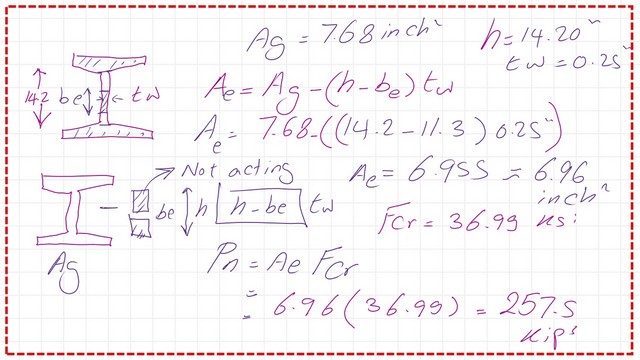 Ag = 7.68 inch²
h = 14.20"
tw = 0.25"
14.2 be tw
Ae = Ag - (h - be) tw
Ae = 7.68 - ((14.2 - 11.3) 0.25")
Not acting
Ae = 6.955 = 6.96 inch²
be h h - be tw
Fcr = 36.99 ksi
Ag
Pn = Ae Fcr
= 6.96 (36.99) = 257.5 kips